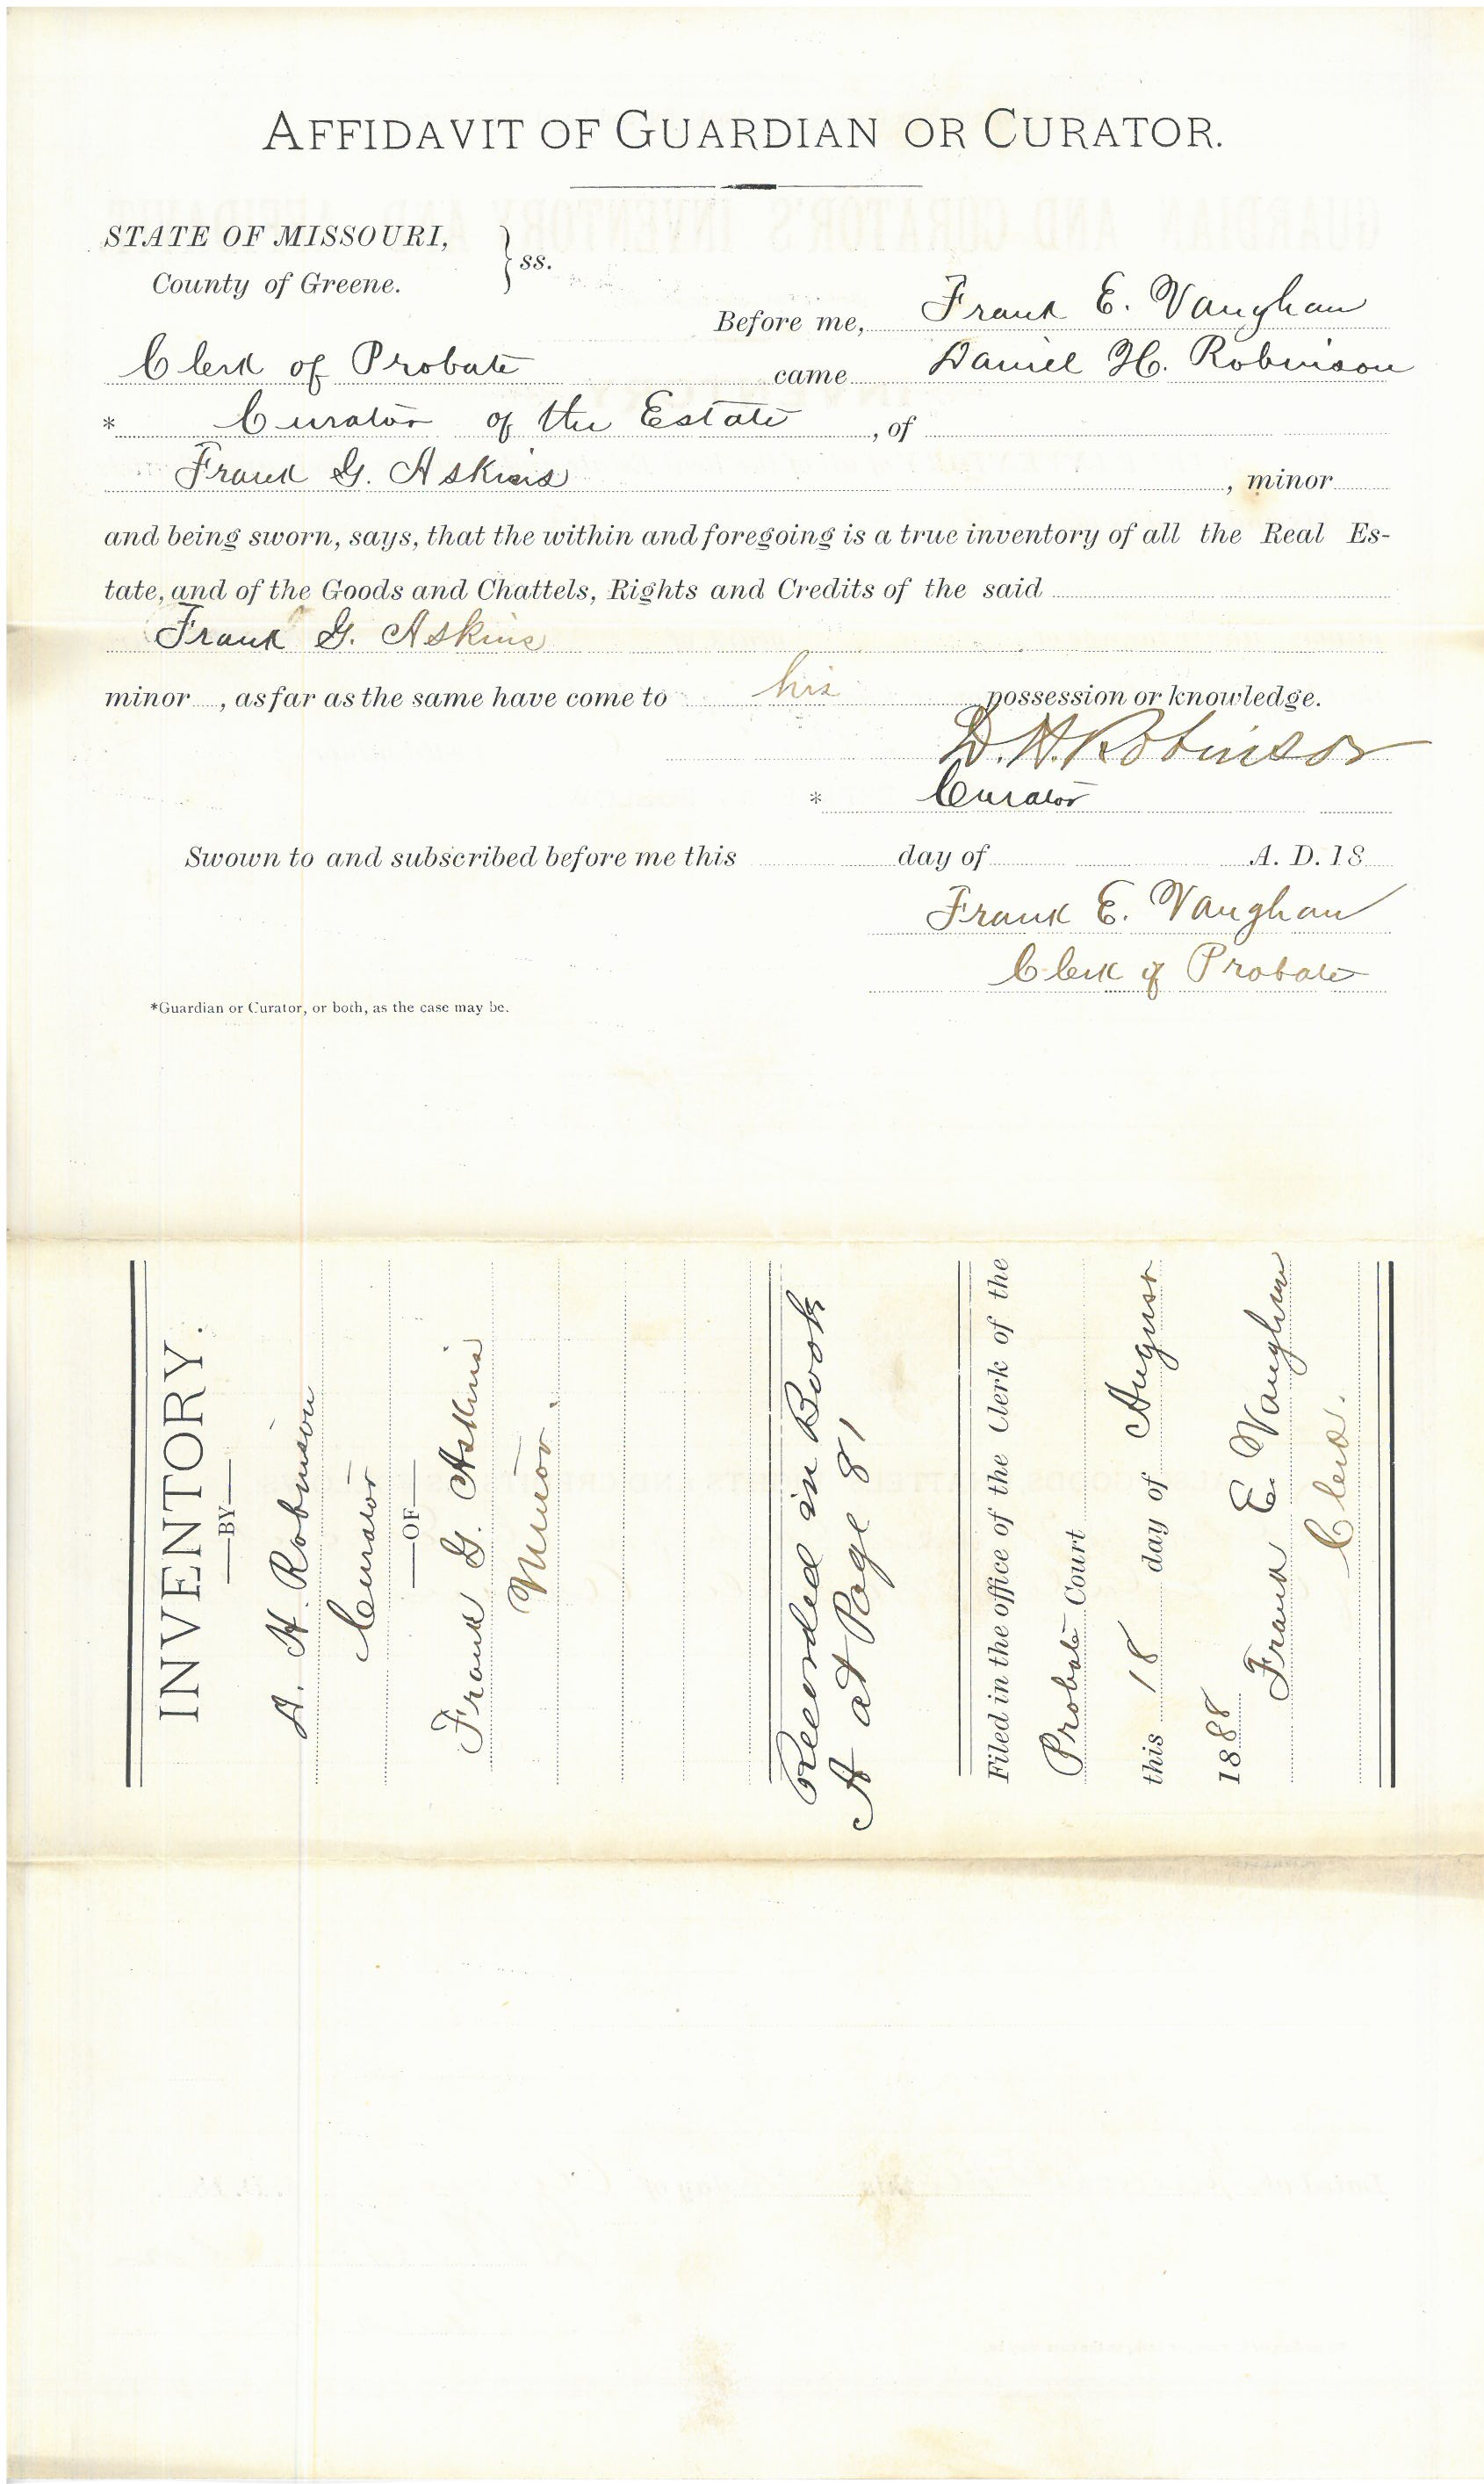 AFFIDAVIT OF GUARDIAN OR CURATOR.
STATE OF MISSOURI,
County of Greene.
} ss.
Before me, Frank E. Vaughan
Clerk of Probate came Daniel H. Robinson
* Curator of the Estate , of
Frank G. Askins , minor
and being sworn, says, that the within and foregoing is a true inventory of all the Real Es-
tate, and of the Goods and Chattels, Rights and Credits of the said
Frank G. Askins
minor , as far as the same have come to his possession or knowledge.
D. H. Robinson
* Curator
Swown to and subscribed before me this day of A. D. 18
Frank E. Vaughan
Clerk of Probate
*Guardian or Curator, or both, as the case may be.
INVENTORY.
—BY—
D. H. Robinson
Curator
—OF—
Frank G. Askins
Minor.
Recorded in Book
A at Page 81
Filed in the office of the Clerk of the
Probate Court
this 18 day of August
1888
Frank E. Vaughan
Clerk.